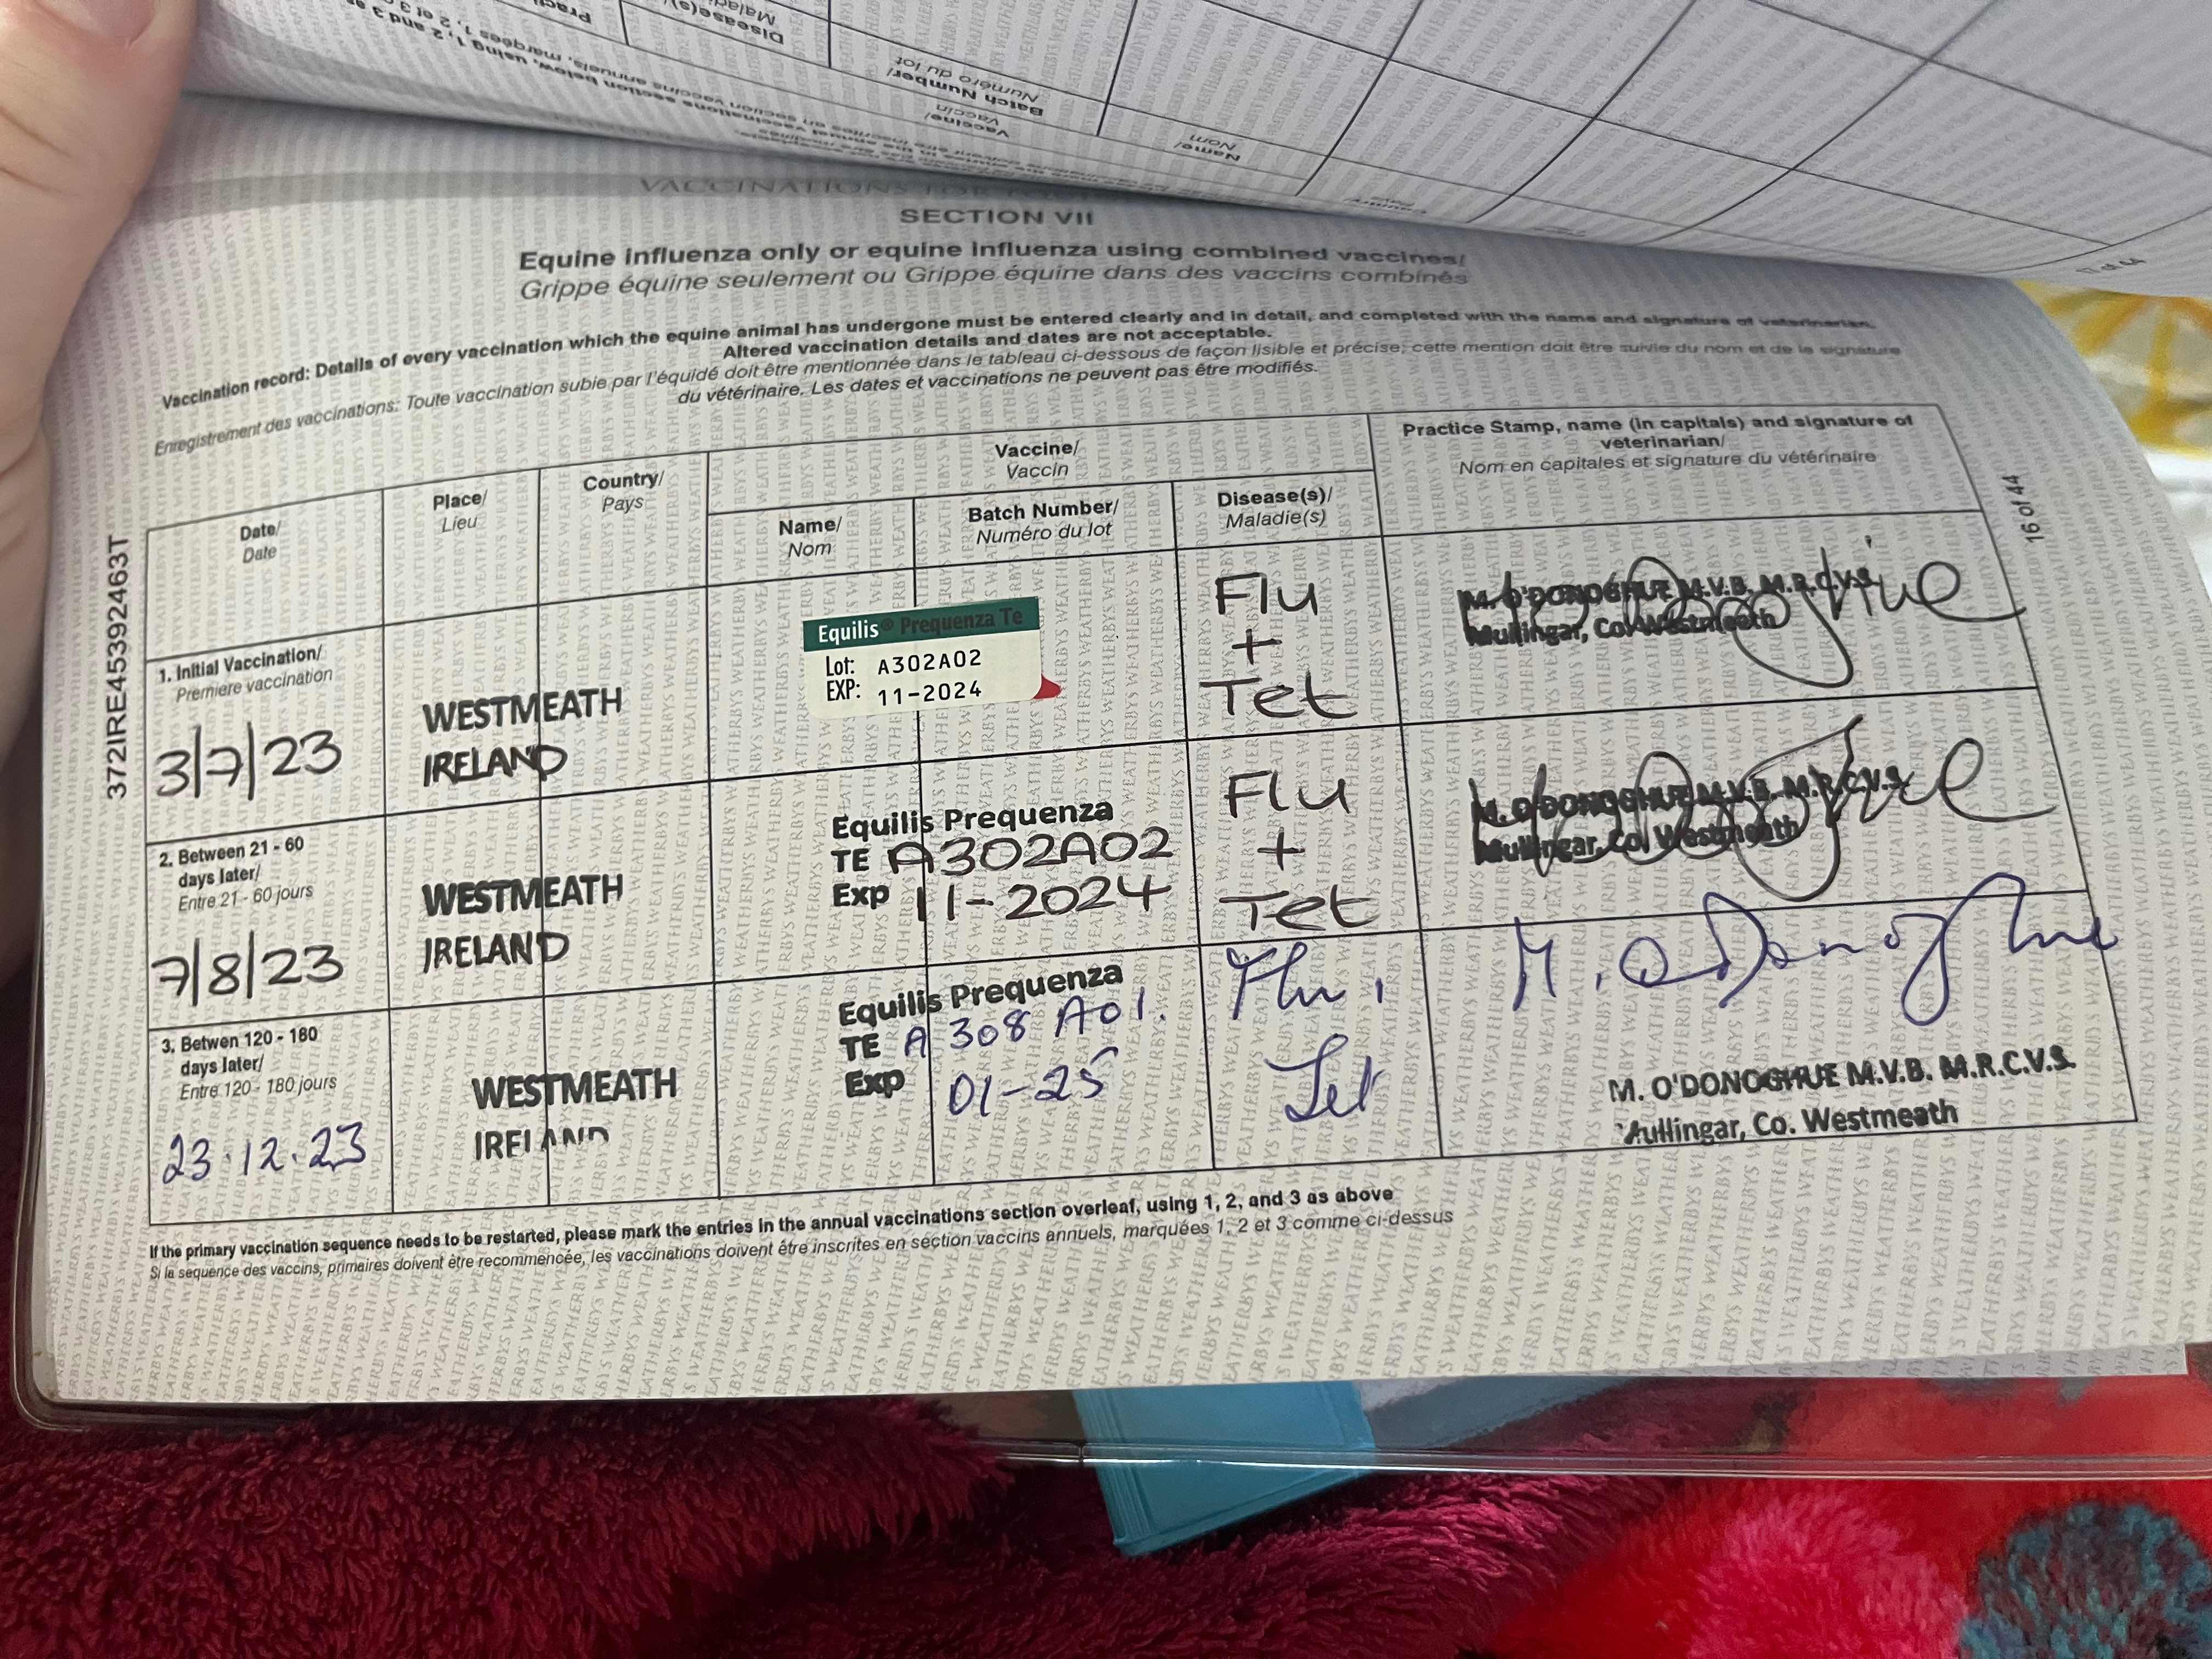 1, 2 and 3 as
using 1, 2, and 3 as
Disease(s)/
Maladie(s)
Vaccine/
Vaccin
Batch Number/
Numéro du lot
Name/
Nom
Country/
Pays
17 of 44
SECTION VII
Equine influenza only or equine influenza using combined vaccines/
Grippe équine seulement ou Grippe équine dans des vaccins combinés
Vaccination record: Details of every vaccination which the equine animal has undergone must be entered clearly and in detail, and completed with the name and signature of veterinarian.
Altered vaccination details and dates are not acceptable.
Enregistrement des vaccinations: Toute vaccination subie par l'équidé doit être mentionnée dans le tableau ci-dessous de façon lisible et précise; cette mention doit être suivie du nom et de la signature
du vétérinaire. Les dates et vaccinations ne peuvent pas être modifiés.
372IRE45392463T
16 of 44
Date/
Date
Place/
Lieu
Country/
Pays
Vaccine/
Vaccin
Name/
Nom
Batch Number/
Numéro du lot
Disease(s)/
Maladie(s)
Practice Stamp, name (in capitals) and signature of
veterinarian/
Nom en capitales et signature du vétérinaire
1. Initial Vaccination/
Premiere vaccination
3/7/23
WESTMEATH
IRELAND
Equilis® Prequenza Te
Lot: A302A02
EXP: 11-2024
Flu
+
Tet
M. O'DONOGHUE M.V.B. M.R.C.V.S.
Mullingar, Co. Westmeath
2. Between 21 - 60
days later/
Entre 21 - 60 jours
7/8/23
WESTMEATH
IRELAND
Equilis Prequenza
TE A302A02
Exp 11-2024
Flu
+
Tet
M. O'DONOGHUE M.V.B. M.R.C.V.S.
Mullingar, Co. Westmeath
3. Betwen 120 - 180
days later/
Entre 120 - 180 jours
23.12.23
WESTMEATH
IRELAND
Equilis Prequenza
TE A 308 A01.
Exp 01-25
Flu,
Tet
M. O'Donoghue
M. O'DONOGHUE M.V.B. M.R.C.V.S.
Mullingar, Co. Westmeath
If the primary vaccination sequence needs to be restarted, please mark the entries in the annual vaccinations section overleaf, using 1, 2, and 3 as above
Si la sequence des vaccins, primaires doivent être recommencée, les vaccinations doivent être inscrites en section vaccins annuels, marquées 1, 2 et 3 comme ci-dessus